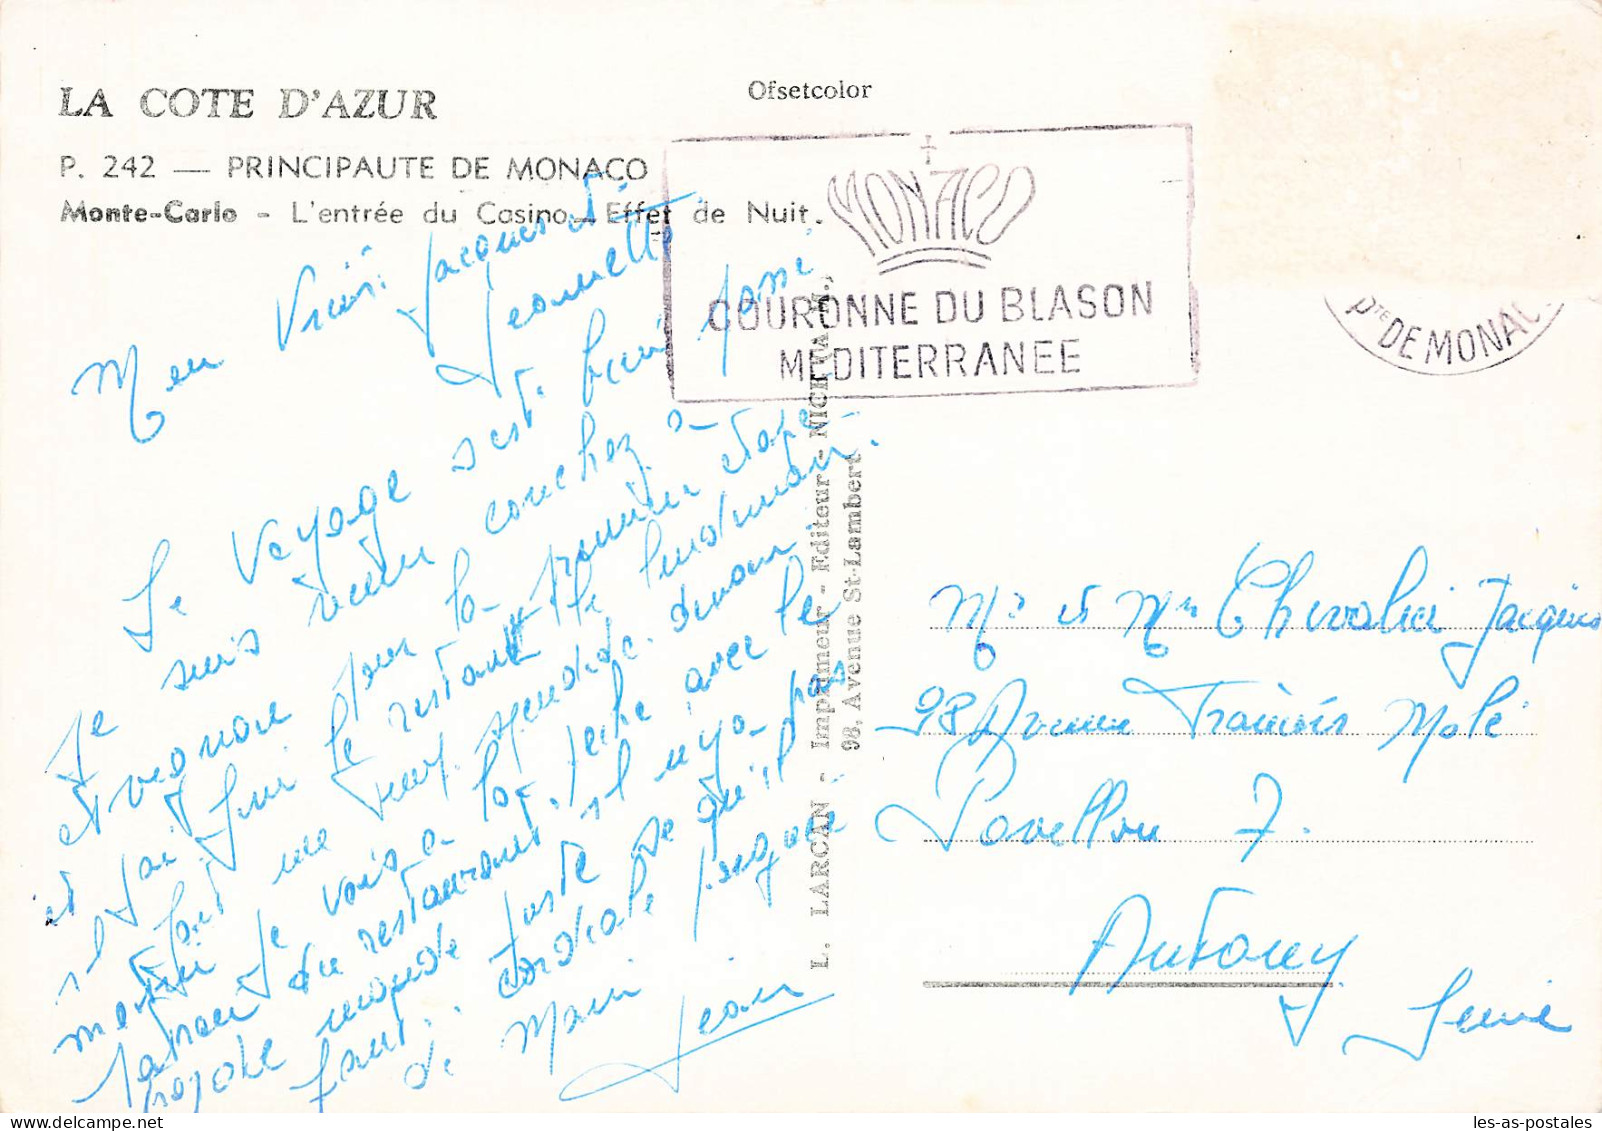 LA COTE D'AZUR
Ofsetcolor
P. 242 — PRINCIPAUTE DE MONACO
Monte-Carlo - L'entrée du Casino - Effet de Nuit.
MONACO
COURONNE DU BLASON
MEDITERRANEE
Pté DE MONACO
L. LARCAN - Imprimeur - Editeur - NICE
98, Avenue St-Lambert
Mon Vieux Jacques et
Jeannette
Le Voyage s'est bien passé
Je suis venu coucher à
pour la première étape
et j'ai fini le restant le lendemain.
il fait un temps splendide. demain
matin je vais à la pêche avec le
patron du restaurant. il n'y a pas
monde juste ce qu'il
faut. cordiale poignée
de Main
Jean
Mr et Mme Chevalier Jacques
98 Avenue François Molé
Pavillon 7.
Antony
Seine
les-as-postales